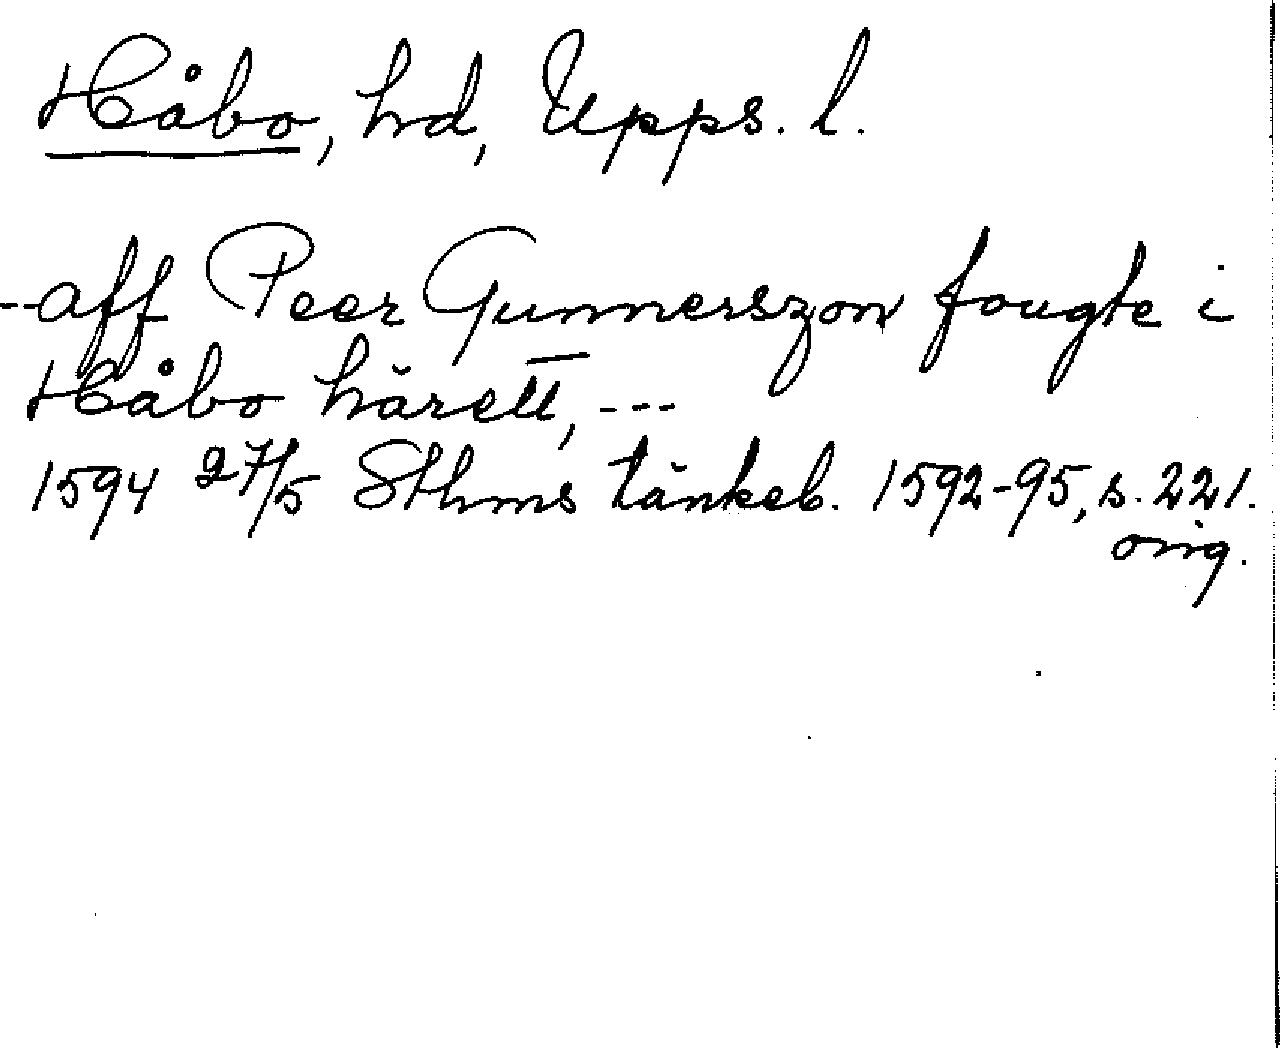 Håbo, hd, Upps. l.
--aff Peer Gunnerszon fougte i
Håbo härett, ---
1594 27/5 Sthms tänkeb. 1592-95, s. 221.
orig.